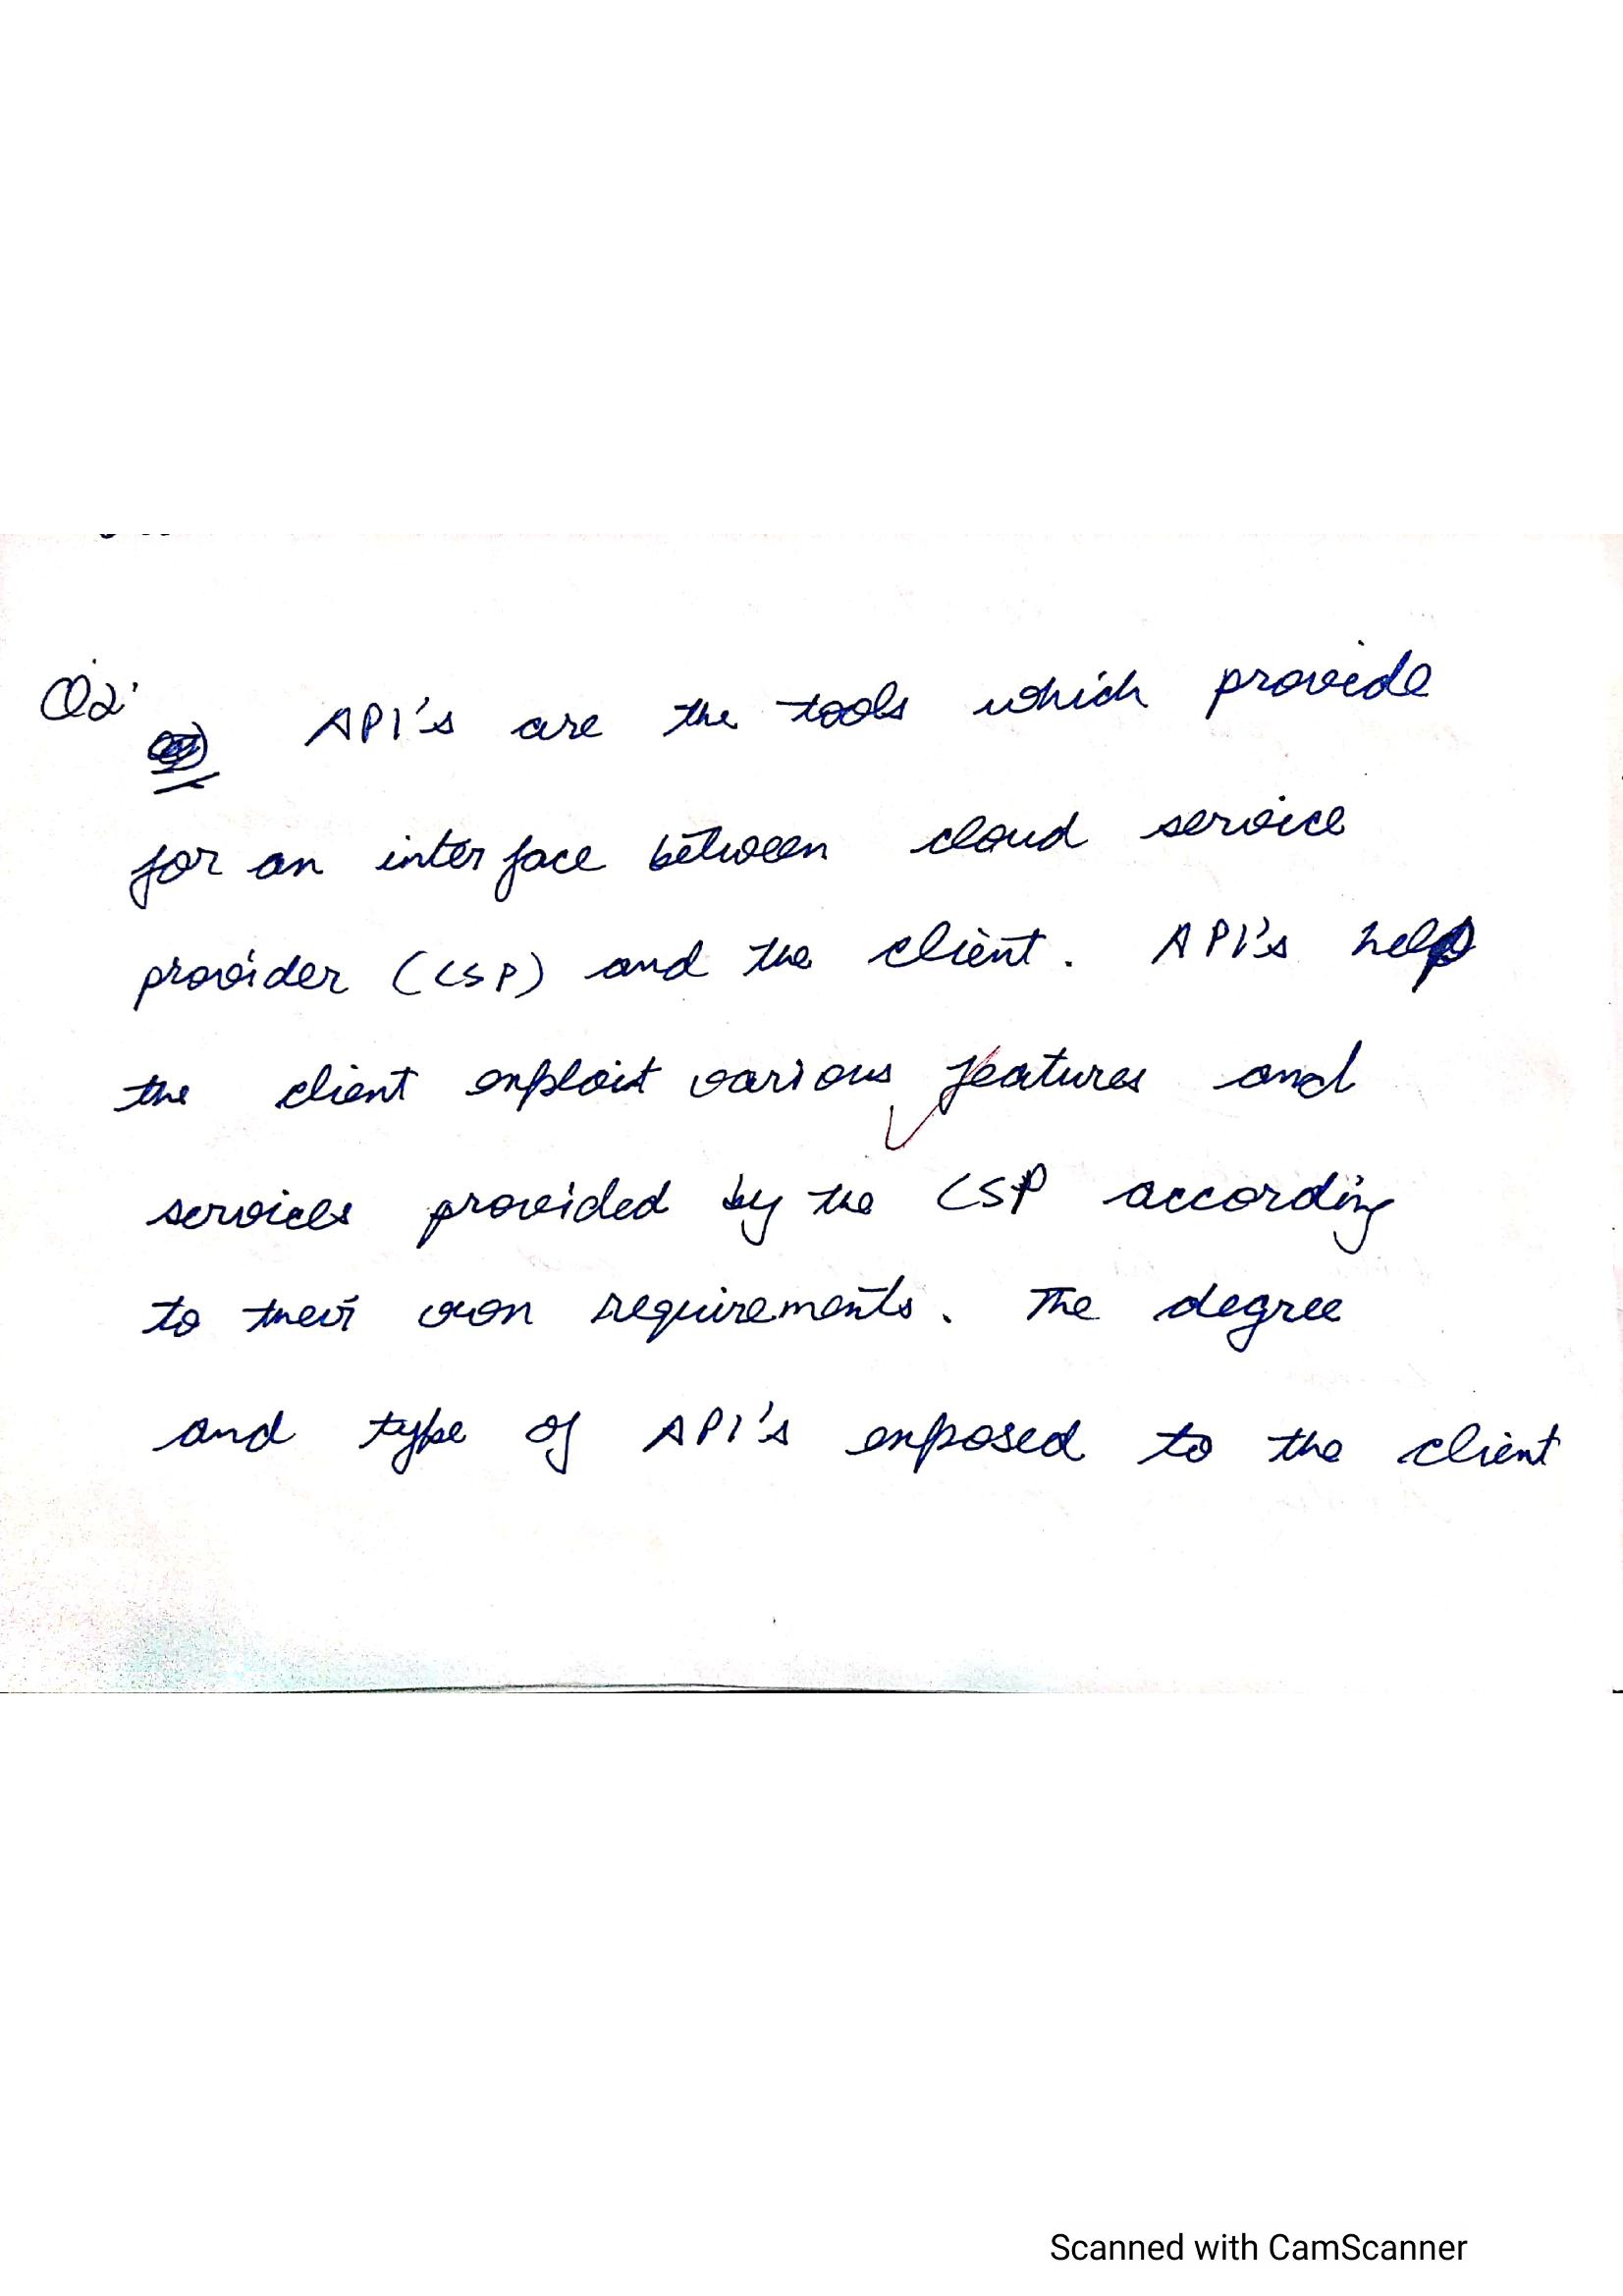 Q2.
API's are the tools which provide
for an interface between cloud service
provider (CSP) and the client. API's help
the client exploit various features and
services provided by the CSP according
to their own requirements. The degree
and type of API's exposed to the client
Scanned with CamScanner